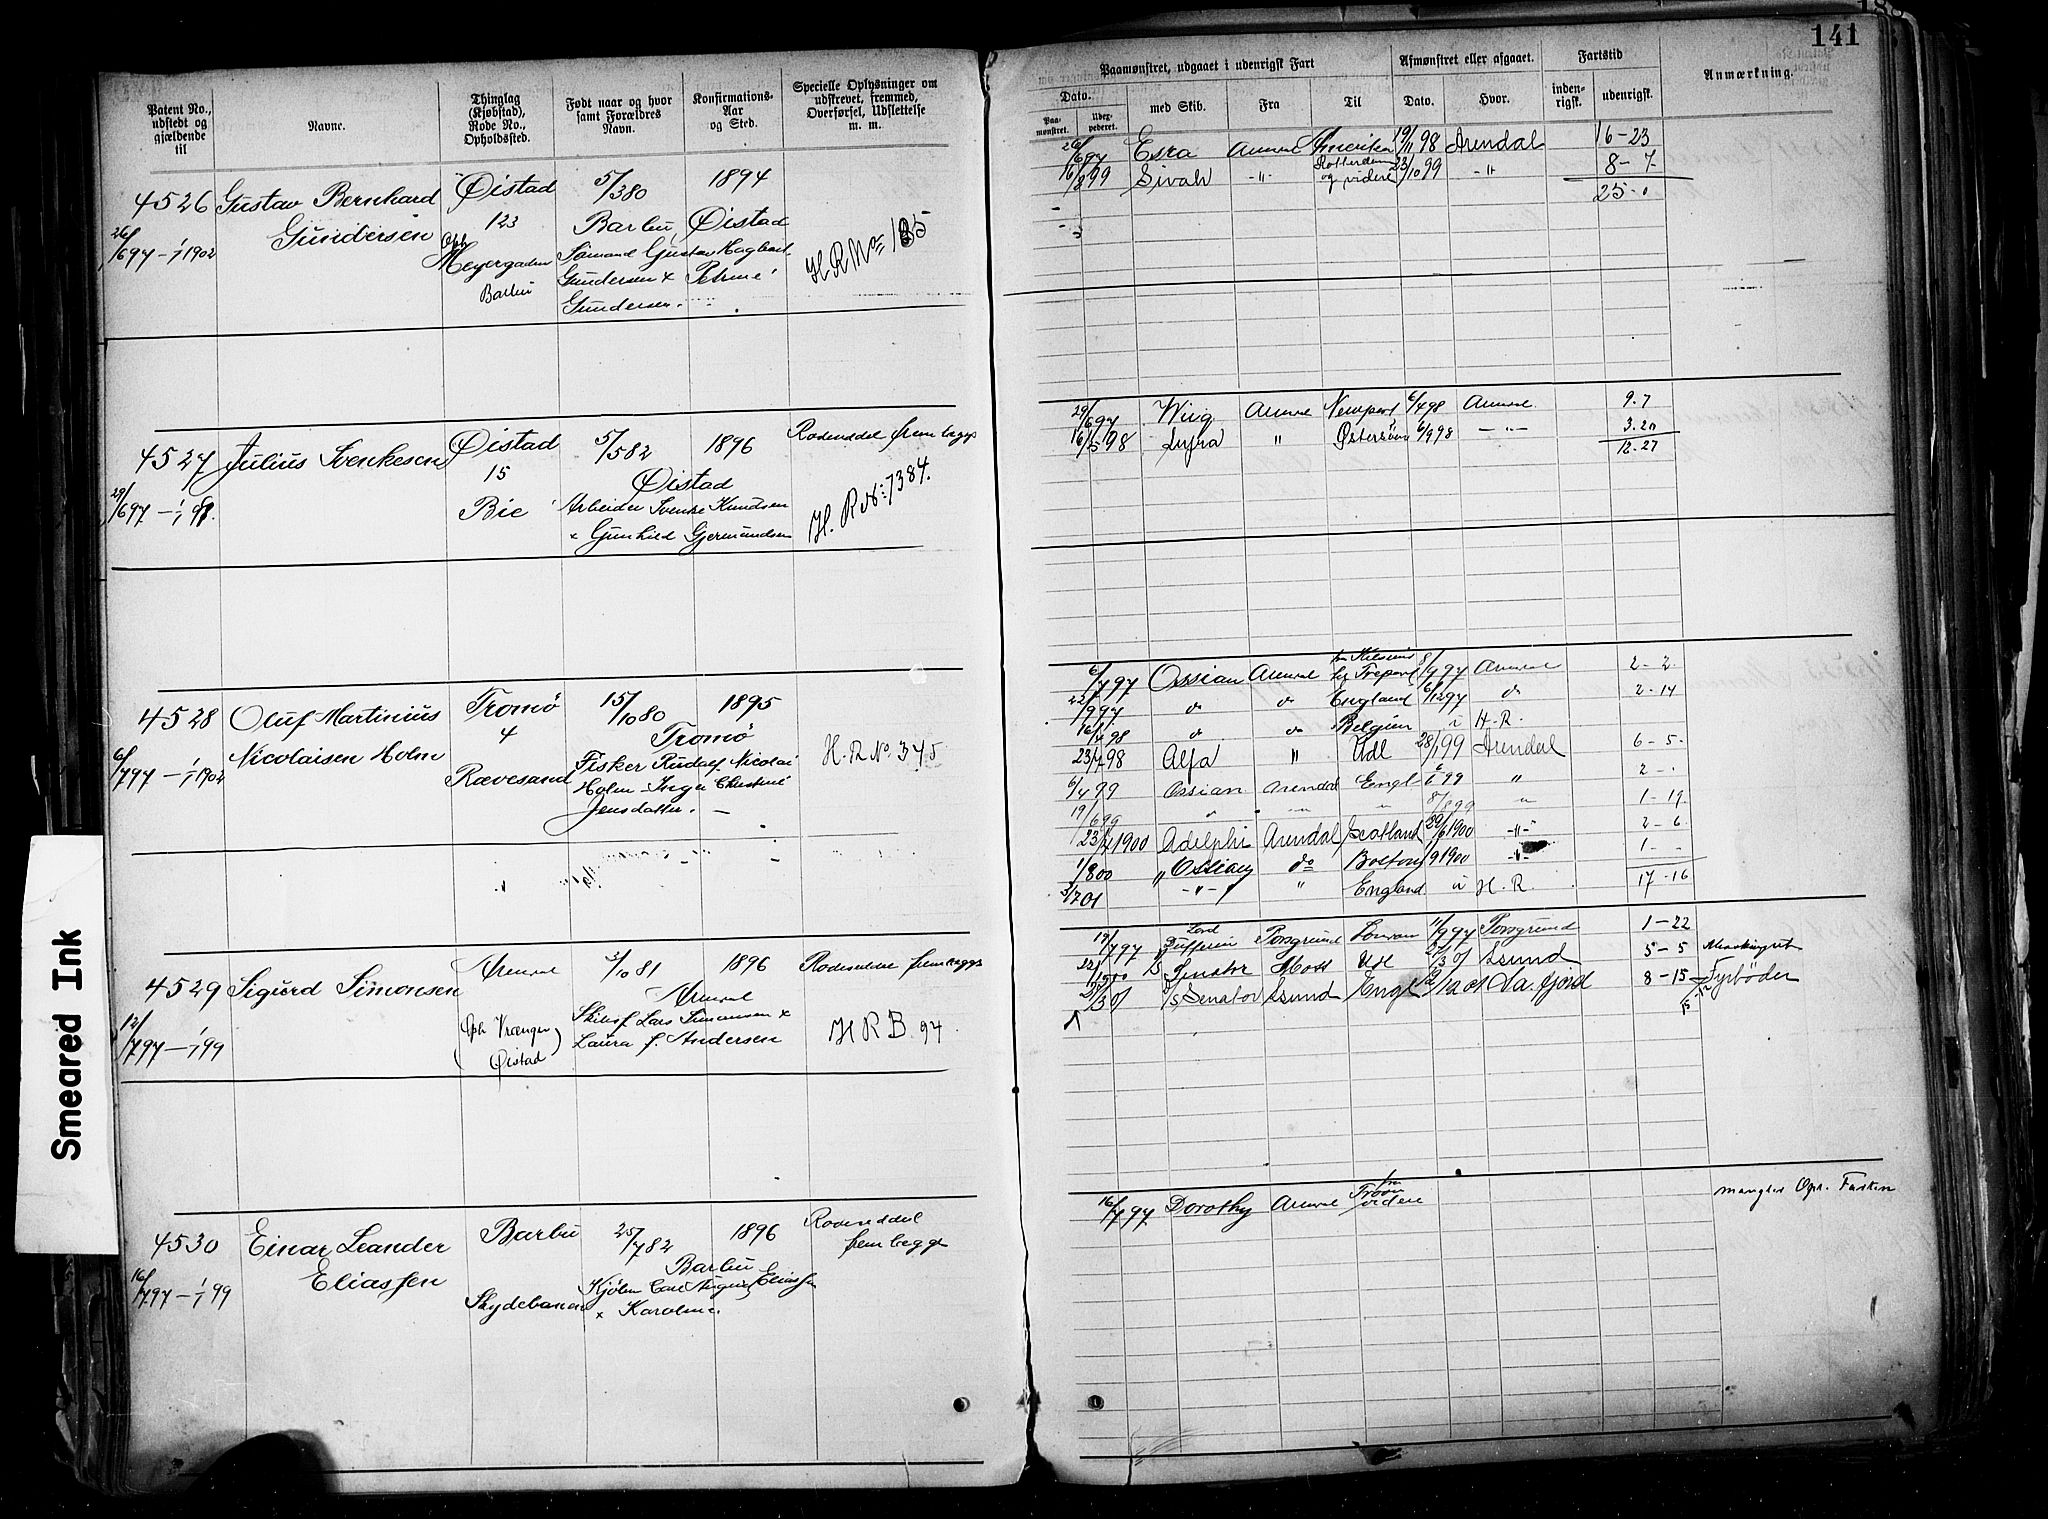 141
Patent No., udstedt og gjældende til
Navne.
Thinglag (Kjøbstad), Rode No., Opholdssted.
Født naar og hvor samt Forældres Navn.
Konfirmations-Aar og Sted.
Specielle Oplysninger om udskrevet, fremmed, Overførsel, Udslettelse m. m.
Paamønstret, udgaaet i udenrigsk Fart
Afmønstret eller afgaaet.
Fartstid
Anmærkning.
Dato.
med Skib.
Fra
Til
Dato.
Hvor.
inden-rigsk.
udenrigsk.
Paa-mønstret.
4526 Gustav Bernhard Øistad 5/3 80 1894
Gundersen 123 Barbu, Øistad
26/6 97 – 1/1 1902
Oph. Meyergaden Barbu
Sømand Gustav Hagbart
Gundersen x Petrine
Gundersen.
H R No 185
26/6 97 Esra Arendal Amerika 19/11 98 Arendal 16-23
16/8 99 Sivah -"- Rotterdam og videre 23/10 99 -"- 8-7
25-0
4527 Julius Svenkesen Øistad 5/5 82 1896 Rodeseddel fremlægges
15 Øistad
29/6 97 – 1/1 98.
Bie Arbeider Svenke Knudsen
x Gunhild Gjermundsen
H. R No: 7384.
29/6 97 Wiig Arendal Newport 6/4 98 Arendal 9.7
16/5 98 Lyra " Østersøen 6/9 98 -"- 3.20
12-27
4528 Oluf Martinius Tromø 15/10 80 1895
4 Tromø
6/7 97 – 1/1 1902 Nicolaisen Holm
Rævesand Fisker Rudolf Nicolai
Holm - Inger Christine
Jensdatter. —
H. R No. 345
6/7 97 Ossian Arendal Treport 8/9 97 Arendal 2-2
22/9 97 do do England 6/12 97 do 2-14
16/4 98 do do Belgien i H.R.
23/7 98 Alfa " Udl 28/1 99 Arendal 6-5.
6/4 99 Ossian Arendal Engl 6/6 99 " 2-.
19/6 99 " -"- " 8/8 99 " 1-19.
23/4 1900 Adelphi Arendal Scotland 29/6 1900 -"- 2-6
1/8 00 " Ossian do Boston 9 1900 -"- 1--
3/7 01 -"- " England i H.R. 17-16
4529 Sigurd Simonsen Arendal 3/10 81 1896 Rodeseddel fremlægges
Arendal
12/7 97 – 1/1 99
(Oph. Vrænger Øistad)
Skibsf. Lars Simonsen x
Laura f. Andersen
H R B 94.
19/7 97 Lord Dufferin Porsgrund London 11/9 97 Porsgrund 1-22
Senator Moss Udl Lsund 5-5
Senator Lsund Engl La.fjord 8-15 Fyrbøder
4530 Einar Leander Barbu 25/7 82 1896 Rodeseddel fremlægges
Eliassen Barbu
16/7 97 – 1/1 99
Skydebanen Kjøbm Carl August Eliassen
x Karoline.
16/7 97 Dorothy Arendal Troon videre mangler Oph. Farten
Smeared Ink